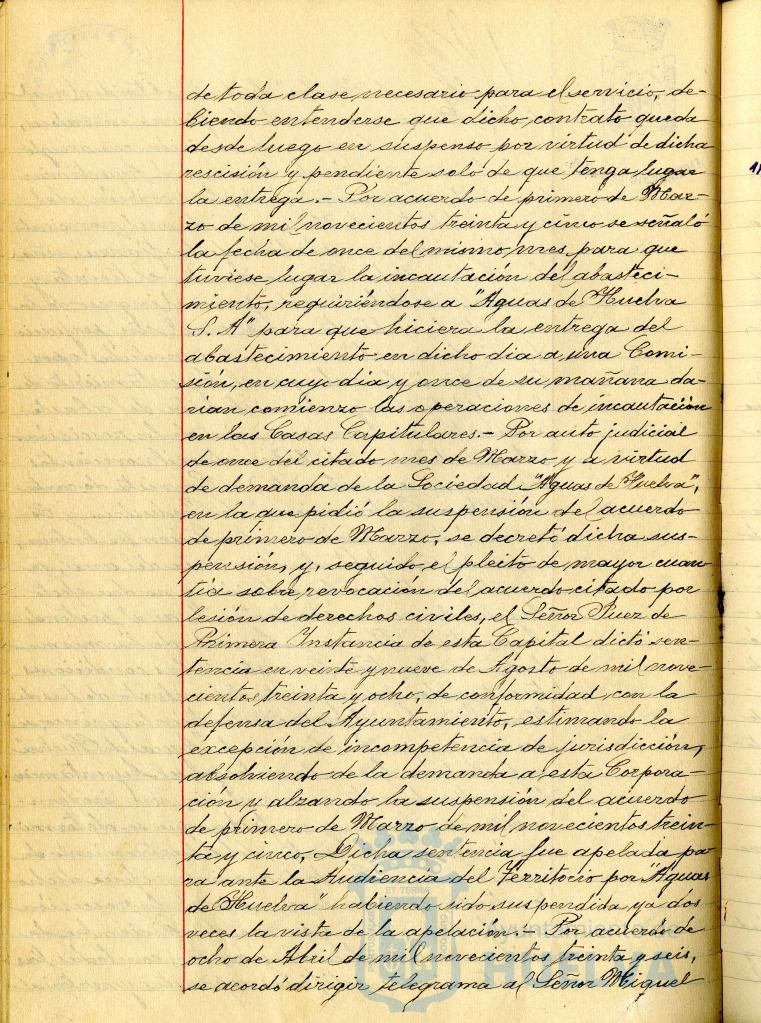 de toda clase necesario para el servicio, de-
biendo entenderse que dicho contrato queda
desde luego en suspenso por virtud de dicha
rescisión y pendiente solo de que tenga lugar
la entrega.- Por acuerdo de primero de Mar-
zo de mil novecientos treinta y cinco se señaló
la fecha de once del mismo mes para que
tuviese lugar la incautación del abasteci-
miento, requiriéndose a "Aguas de Huelva
S. A" para que hiciera la entrega del
abastecimiento en dicho dia a una Comi-
sión, en cuyo dia y once de su mañana da-
rian comienzo las operaciones de incautación
en las Casas Capitulares.- Por auto judicial
de once del citado mes de Marzo y a virtud
de demanda de la Sociedad "Aguas de Huelva",
en la que pidió la suspensión del acuerdo
de primero de Marzo, se decretó dicha sus-
pensión, y, seguido el pleito de mayor cuan-
tía sobre revocación del acuerdo citado por
lesión de derechos civiles, el Señor Juez de
Primera Instancia de esta Capital dictó sen-
tencia en veinte y nueve de Agosto de mil nove-
cientos treinta y ocho, de conformidad con la
defensa del Ayuntamiento, estimando la
excepción de incompetencia de jurisdicción,
absolviendo de la demanda a esta Corpora-
ción y alzando la suspensión del acuerdo
de primero de Marzo de mil novecientos trein-
ta y cinco. Dicha sentencia fue apelada pa-
ra ante la Audiencia del Territorio por "Aguas
de Huelva" habiendo sido suspendida ya dos
veces la vista de la apelación.- Por acuerdo de
ocho de Abril de mil novecientos treinta y seis,
se acordó dirigir telegrama al Señor Miguel
HUELVA